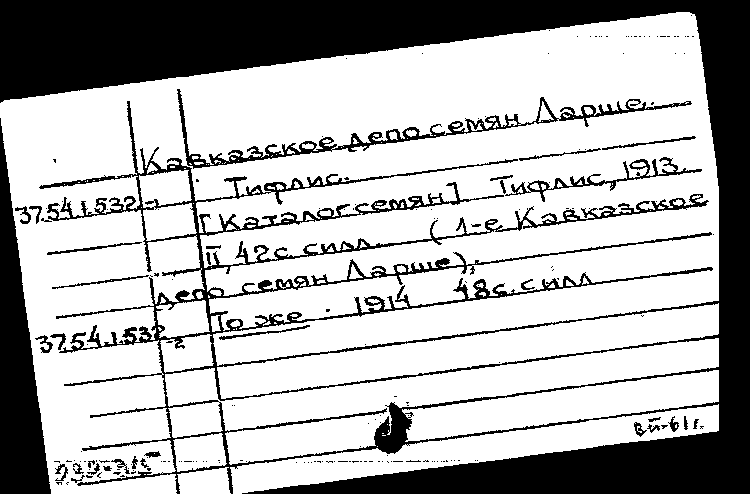 Кавказское депо семян Ларше.
Тифлис.
37.54.1.532-1
[Каталог семян] Тифлис, 1913.
II, 42с. с илл. (1-е Кавказское
депо семян Ларше).
37.54.1.532-2 То же. 1914 48с. с илл